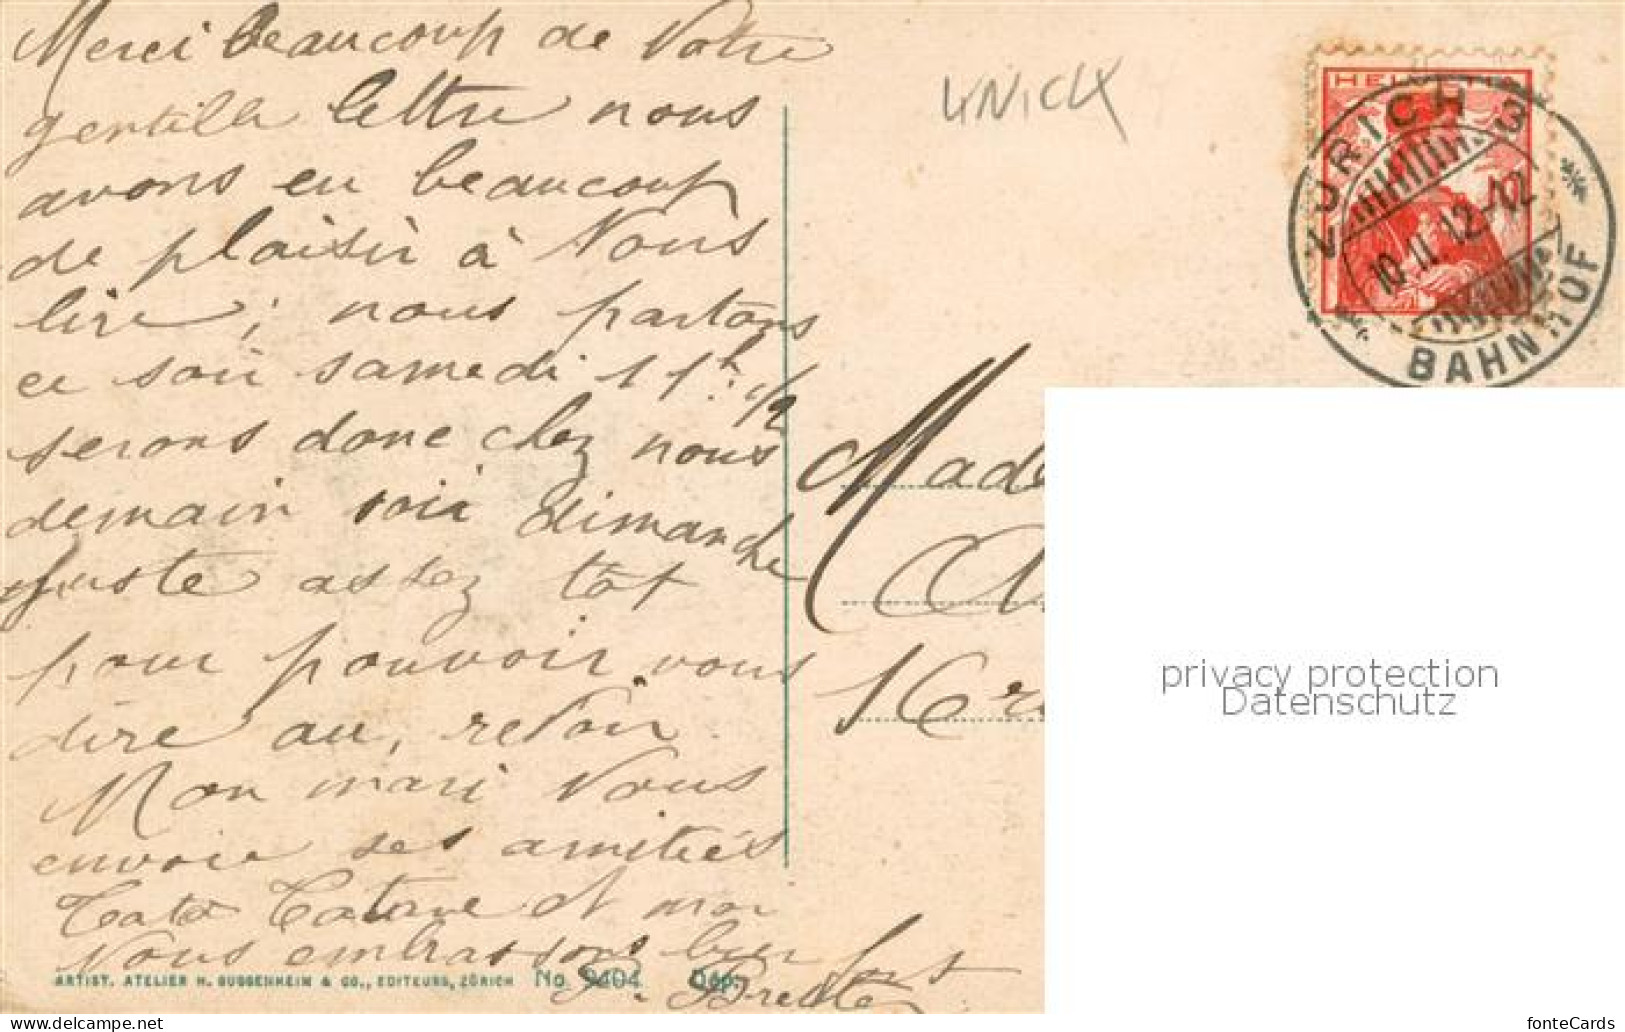 Merci beaucoup de Votre
gentille lettre nous
avons eu beaucoup
de plaisir à Vous
lire; nous partons
ce soir samedi 11h. 1/2
serons donc chez nous
demain soir dimanche
juste assez tôt
pour pouvoir vous
dire au, revoir.
Mon mari Vous
envoie ses amitiés
et moi
Vous embrassons bien fort
ARTIST. ATELIER H. GUGGENHEIM & CO., EDITEURS, ZÜRICH No. 9404 Dép.
UNICK
HELVETIA
ZÜRICH 3
BAHNHOF
Made
privacy protection
Datenschutz
fonteCards